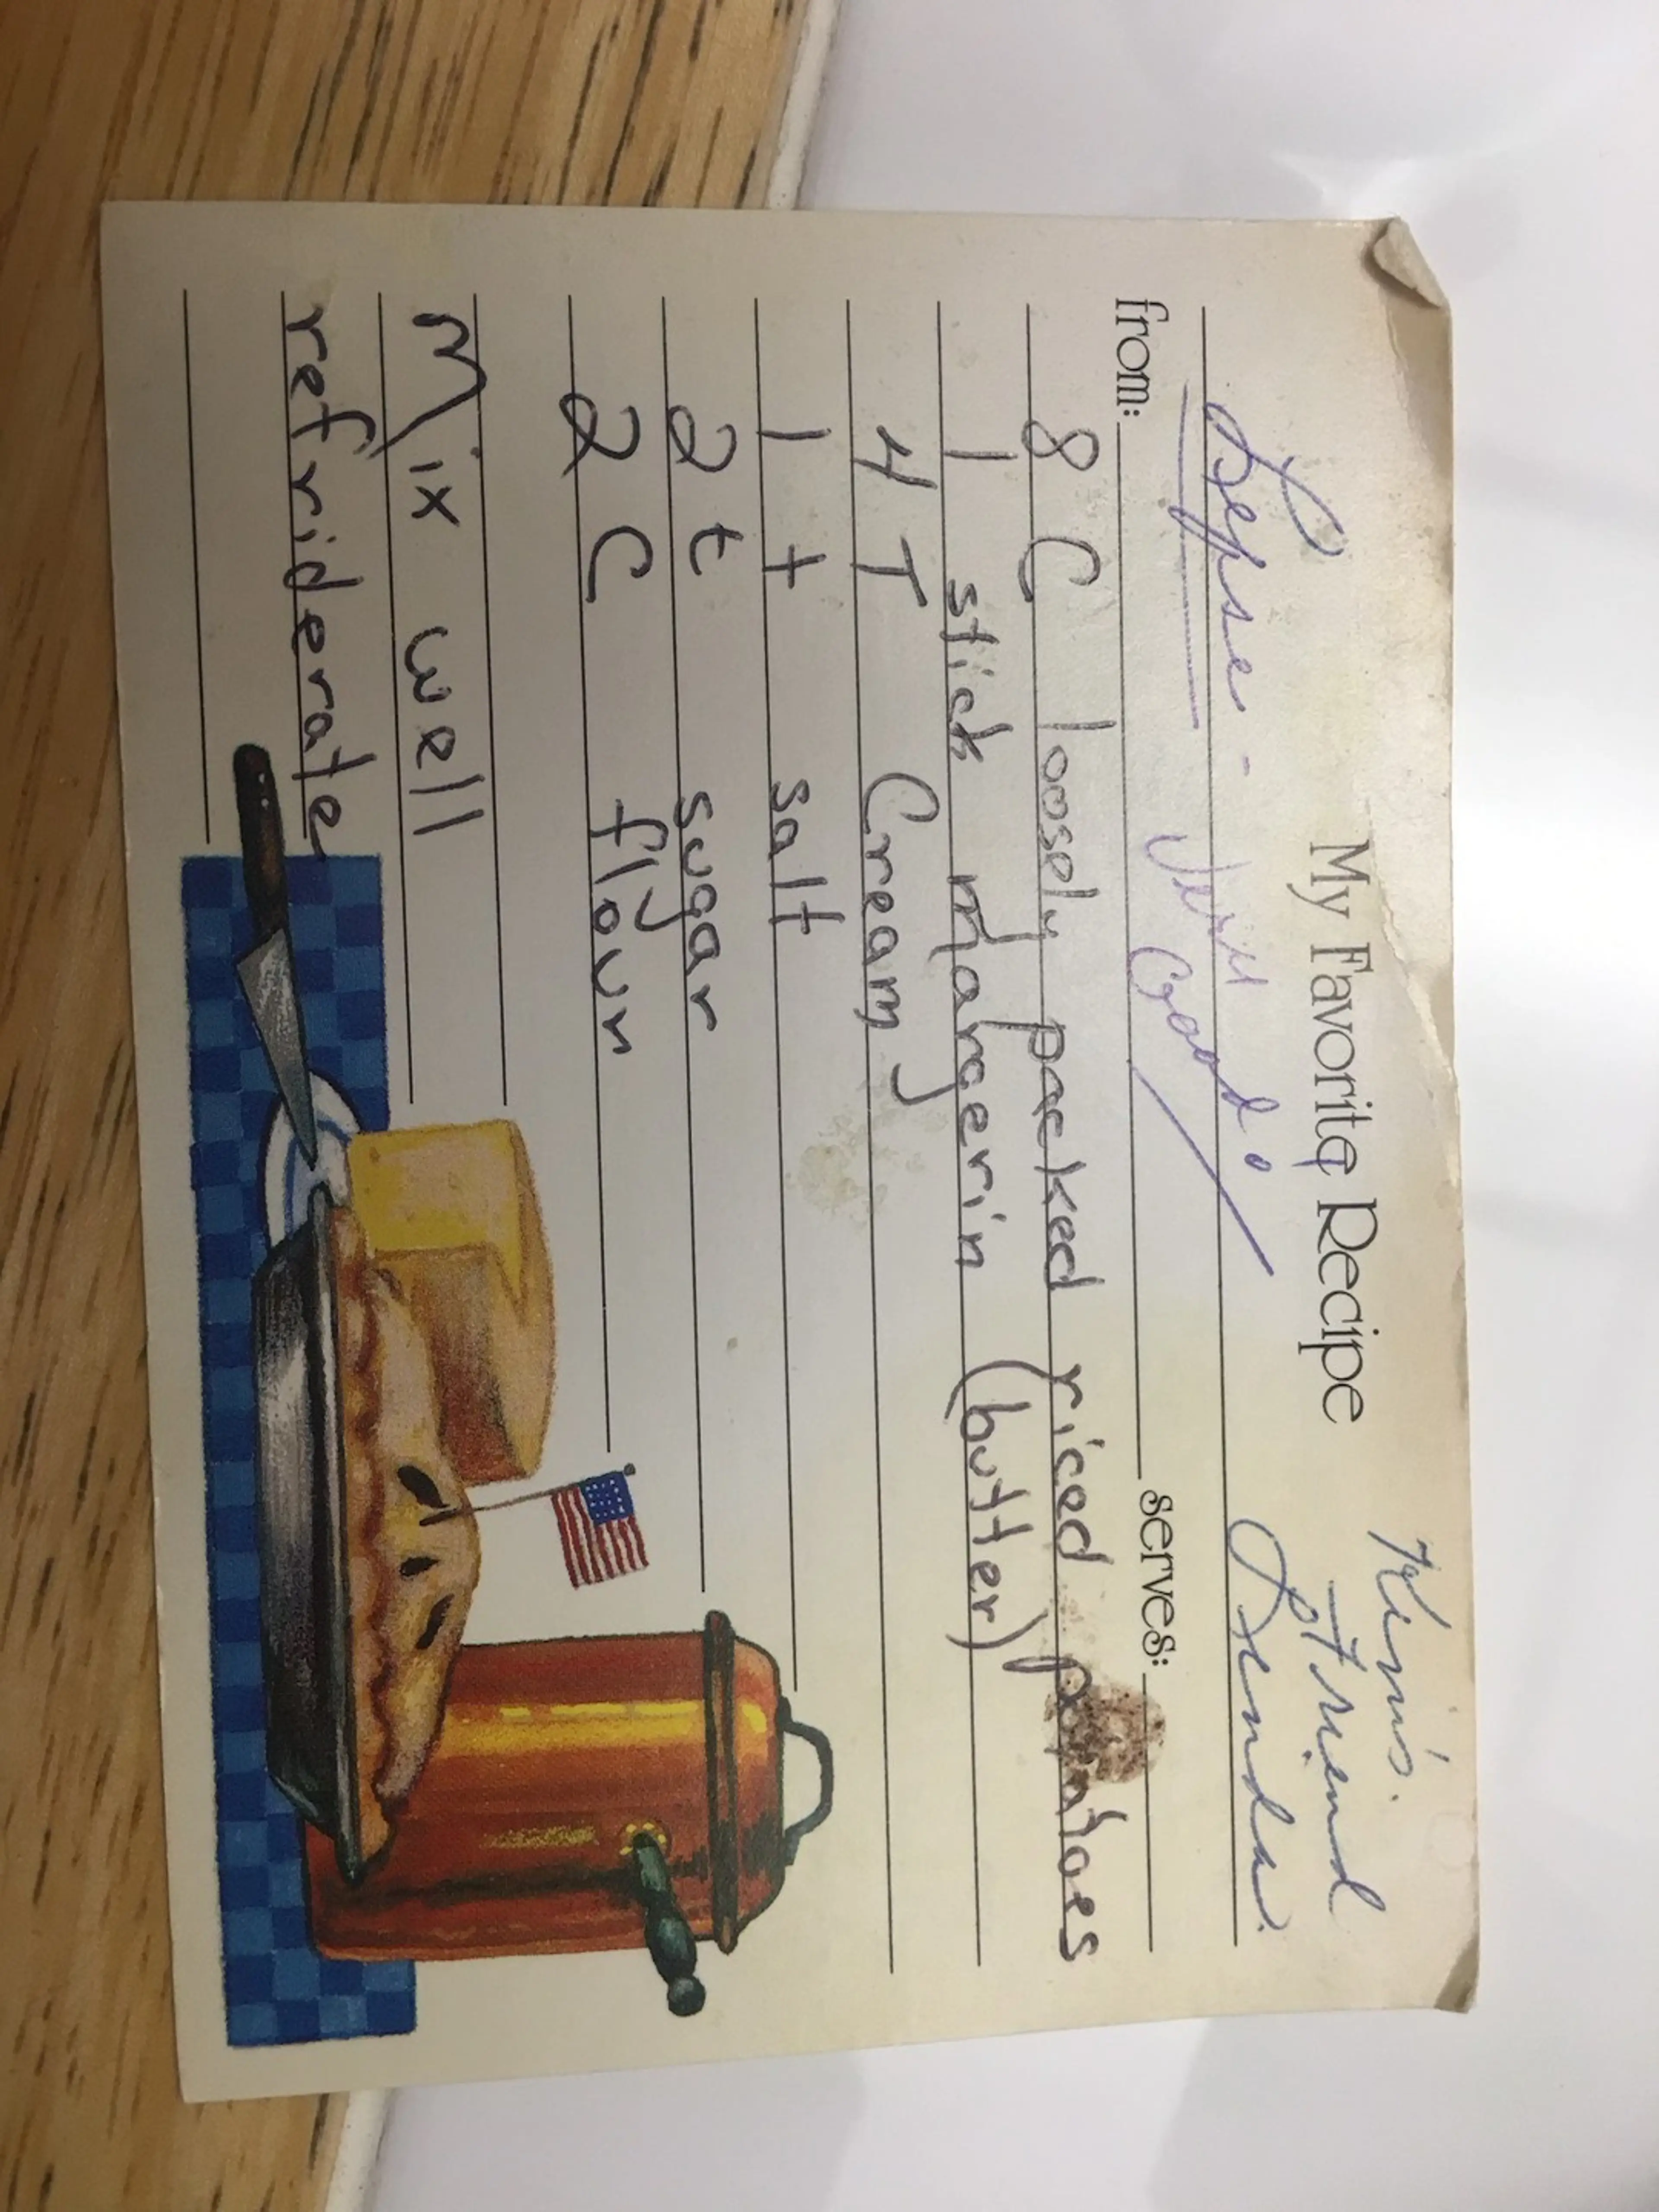 My Favorite Recipe
Kim's
friend
Lepse - Very Good! Brenda
from: serves:
8 C loosely packed riced potatoes
1 stick margerin (butter)
4 T Cream
1 t salt
2 t sugar
2 C flour
Mix well
refriderate